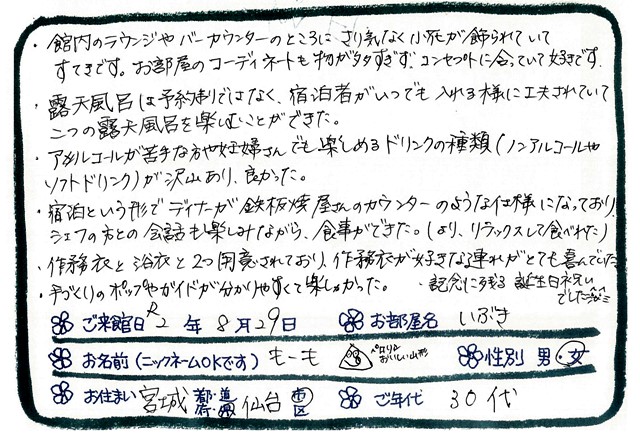 ・館内のラウンジやバーカウンターのところに、さり気なく小花が飾られていて
すてきです。お部屋のコーディネートも物が多すぎず、コンセプトに合っていて好きです。
・露天風呂は予約制ではなく、宿泊者がいつでも入れる様に工夫されていて
二つの露天風呂を楽しむことができた。
・アルコールが苦手な方や妊婦さんでも楽しめるドリンクの種類(ノンアルコールや
ソフトドリンク)が沢山あり、良かった。
・宿泊という形でディナーが鉄板焼屋さんのカウンターのような仕様になっており、
シェフの方との会話も楽しみながら、食事ができた。(より、リラックスして食べれた)
・作務衣と浴衣と2つ用意されており、作務衣が好きな連れがとても喜んでいた
・手づくりのポップやガイドが分かりやすくて楽しかった。 ・記念に残る誕生日祝い
でした
ご来館日 R2年8月29日 お部屋名 いぶき
お名前(ニックネームOKです) もーも ペロリン おいしい山形 性別 男・女
お住まい 宮城 都・道・府・県 仙台 市 区 ご年代 30代